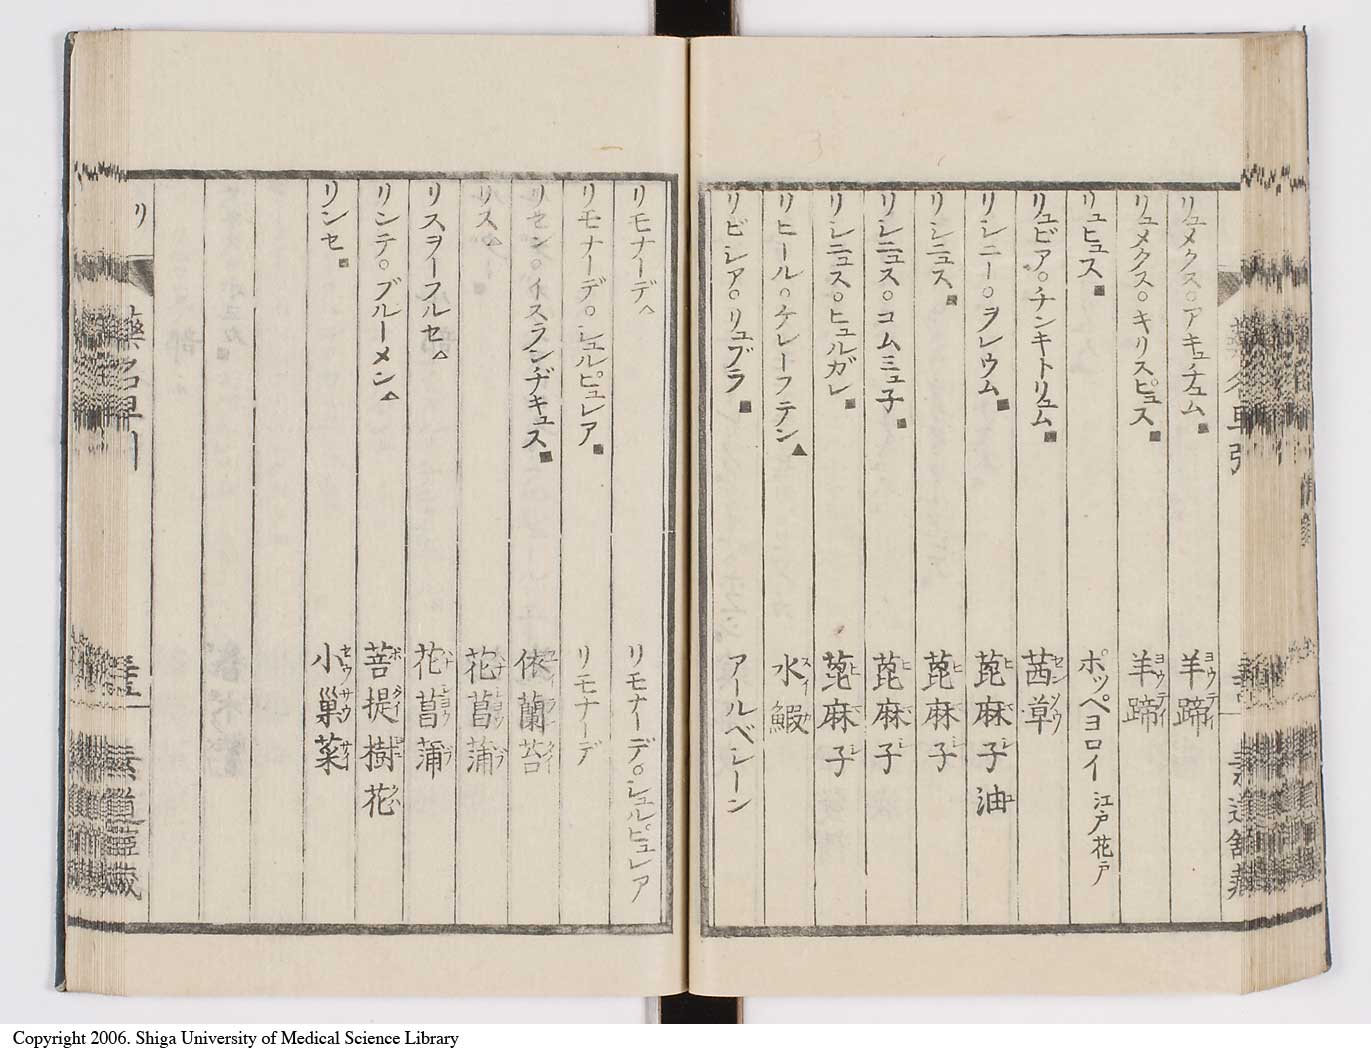 リュメクス○アキュチュム■ 羊蹄
リュメクス○キリスピュス■ 羊蹄
リュビュス■ ポッペヨロイ 江戸花戸
リュビア○チンキトリュム■ 茜草
リシニー○ヲレウム■ 蓖麻子油
リシニュス■ 蓖麻子
リシニュス○コムミュ子■ 蓖麻子
リシニュス○ヒュルガレ■ 蓖麻子
リヒール○ケレーフテン▲ 水鰕
リビシア○リュブラ■ アールベシーン
リモナーデ△ リモナーデ○シュルピュレア
リモナーデ○シュルピュレア■ リモナーデ
リセン○イスランヂキュス■ 依蘭苔
リス△ 花菖蒲
リスヲーフルセ△ 花菖蒲
リンテ○ブルーメン▲ 菩提樹花
リンセ■ 小巢菜
リ
Copyright 2006. Shiga University of Medical Science Library